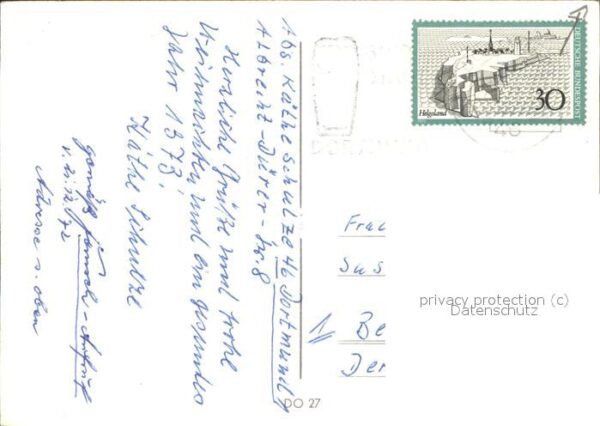 Abs. Käthe Schulze 46 Dortmund 1
Albrecht-Dürer-Str. 8
Herzliche Grüße und frohe
Weihnachten und ein gesundes
Jahr 1973!
Käthe Schulze
gemäß
v. 21.12.72
Adresse s. oben
DEUTSCHE BUNDESPOST
Helgoland
30
46
DORTMUND
Frau
Sus
1 Be
Der
privacy protection (c)
Datenschutz
DO 27